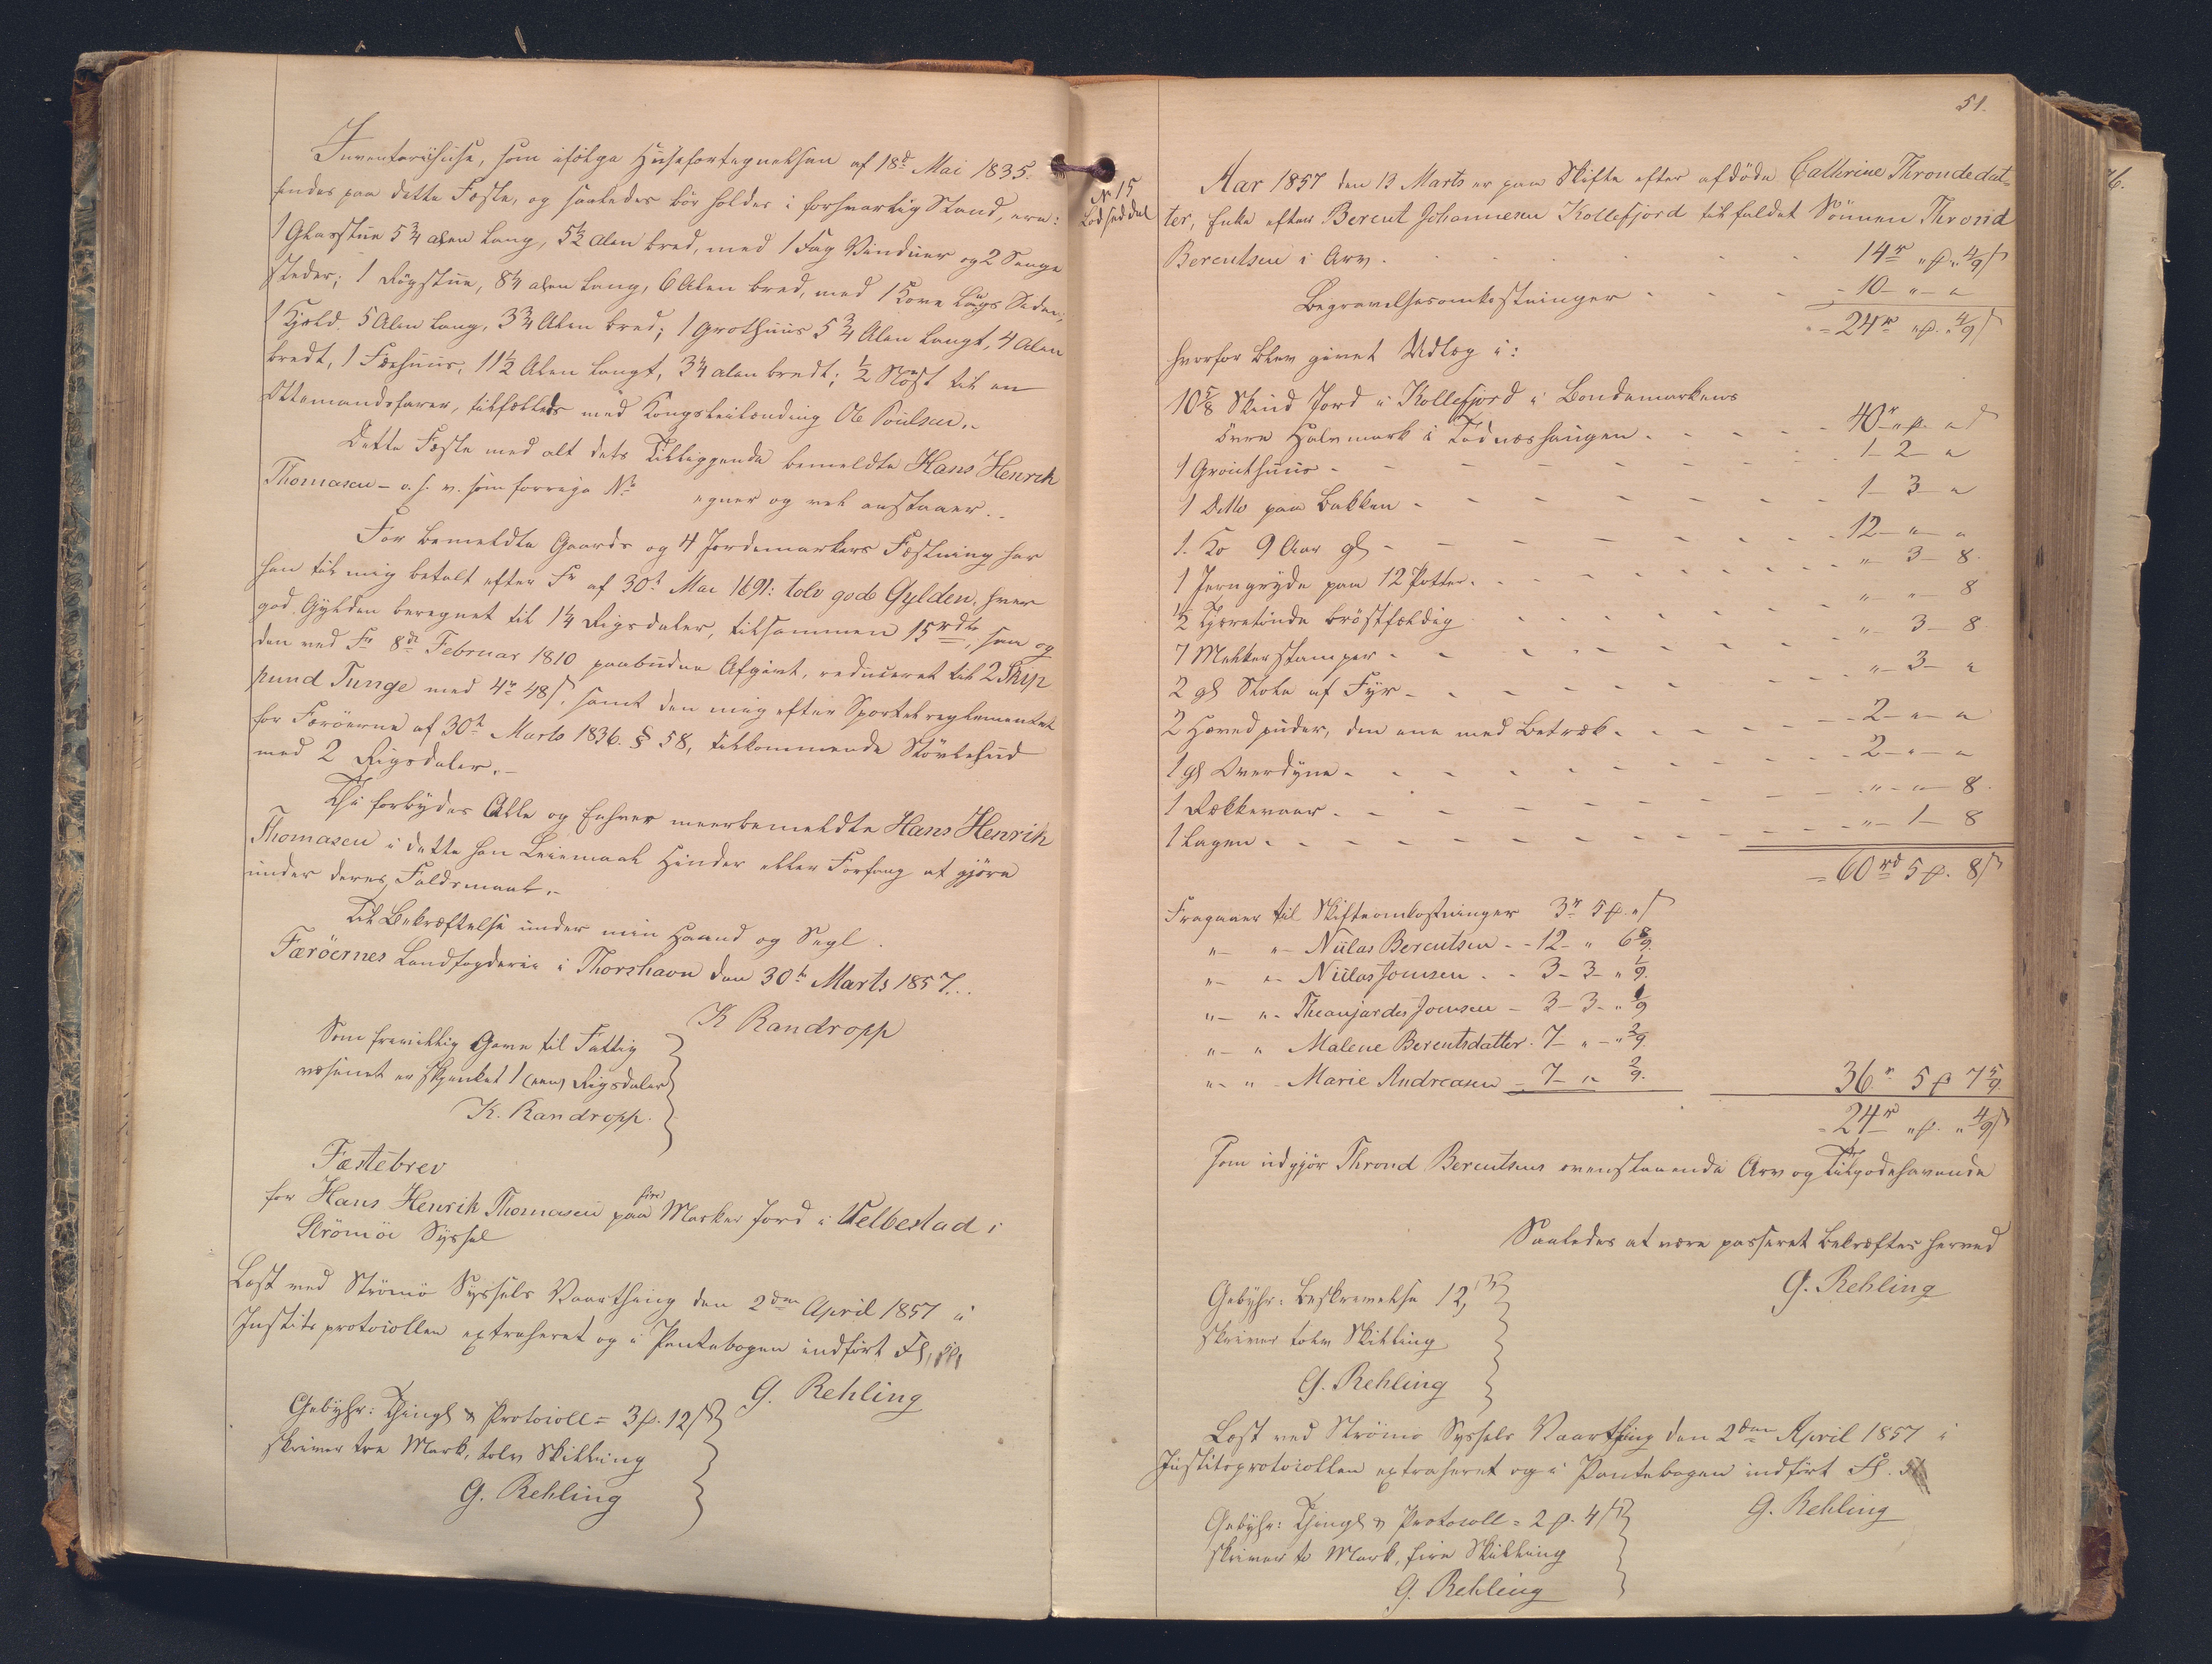 Inventariihuse, som ifölge Husefortegnelsen af 18d Mai 1835.
findes paa dette Fæste, og saaledes bör holdes i forsvarlig Stand, ere:
1 Glasstue 5 3/4 alen lang, 5 1/2 Alen bred, med 1 Fag Vinduer og 2 Senge
steder; 1 Rögstue, 8 1/4 alen lang, 6 Alen bred, med 1 Kove langs Siden;
1 Hjeld. 5 Alen lang, 3 3/4 Alen bred; 1 Grothuus 5 3/4 Alen langt, 4 Alen
bredt, 1 Fæehuus, 11 1/2 Alen langt, 3 1/4 alen bredt; 1/2 Nöst til en
Ottemandsfarer, tilfælleds med Kongsleilænding Ole Poulsen.-
Dette Fæste med alt dets Tilliggende bemeldte Hans Henrik
Thomasen - o. s. v. som forrige No egner og vel anstaaer.-
For bemeldte Gaards og 4 Jordemarkers Fæstning har
han til mig betalt efter Fr af 30t Mai 1691: tolv gode Gylden, hver
god Gylden beregnet til 1 1/4 Rigsdaler, tilsammen 15 rdlr, saa og
den ved Fr 8de Februar 1810 paabudne Afgivt, reduceret til 2 Skip
pund Tunge med 4r 48 s, samt den mig efter Sportelreglementet
for Færöerne af 30t Marts 1836. § 58, tilkommende Stövlehud
med 2 Rigsdaler.-
Thi forbydes Alle og Enhver meerbemeldte Hans Henrik
Thomasen i dette sin Leiemaal Hinder eller Forfang at gjöre
under deres Faldsmaal.-
Til Bekræftelse under min Haand og Segl.
Færöernes Landfogderie i Thorshavn den 30t Marts 1857...
K Randropp
Som frivillig Gave til Fattig
væsenet er skjenket 1 (een) Rigsdaler
K. Randropp.
Fæstebrev
for Hans Henrik Thomasen paa fire Marker Jord i Velbestad i
Strömöe Syssel
Læst ved Strömö Syssels Vaarthing den 2den April 1857 i
Justitsprotocollen extraheret og i Pantebogen indfört Fol.
G. Rehling
Gebyhr: Thingl & Protocoll = 3 p. 12 s
skriver tre Mark, tolv Skilling
G. Rehling
51.
No 15
Lodseddel
Aar 1857 den 13 Marts er paa Skifte efter afdöde Cathrine Throndedat-
ter, Enke efter Berent Johannesen Kollefjord tilfaldet Sönnen Thrond
Berentsen i Arv. 14r " p. " 4/9 s
Begravelsesomkostninger - 10 - " - "
= 24r " p. " 4/9 s
hvorfor blev givet Udlæg i:
10 5/8 Skind Jord i Kollefjord i Bondemarkens
övre Halvmark i Tednæshaugen. 40r " p. " s
1 Grouthuus - 1 - 2 - "
1 Ditto paa Bakken - 1 - 3 - "
1. Ko 9 Aar gl - 12 - " - "
1 Jerngryde paa 12 Potter. " - 3 - 8.
1/2 Tjæretinde bröstfældig " - " - 8
7 Melkerstamper - " - 3 - 8
2 gl Stole af Fyr - " - 3 - "
2 Hovedpuder, den ene med Betræk. 2 - " - "
1 gl Overdyne - 2 - " - "
1 Rækkevaar - " - " - 8.
1 Lagen - " - 1 - 8
= 60rd 5 p. 8 s
Fragaaer til Skifteomkostninger 3r 5 p. " s
" - " - Niilas Berentsen - 12 - " 6 8/9.
" - " - Niilas Joensen - 3 - 3 - " 1/9.
" - " - Joensen - 3 - 3 - " 1/9
" - " Malene Berentsdatter. 7 - " - " 2/9
" - " - Marie Andreasen - 7 - " 2/9. 36r 5 p 7 5/9.
= 24r " p. " 4/9 s
som udgjör Thrond Berentsens ovenstaaende Arv og Tilgodehavende
Saaledes at være passeret bekræftes herved
G. Rehling
Gebyhr: Beskrivelse 12 s
skriver tolv Skilling
G. Rehling
Læst ved Strömö Syssels Vaarthing den 2den April 1857 i
Justitsprotocollen extraheret og i Pantebogen indfört Fol. 51
G. Rehling
Gebyhr: Thingl & Protocoll = 2 p. 4 s
skriver to Mark, fire Skilling
G. Rehling